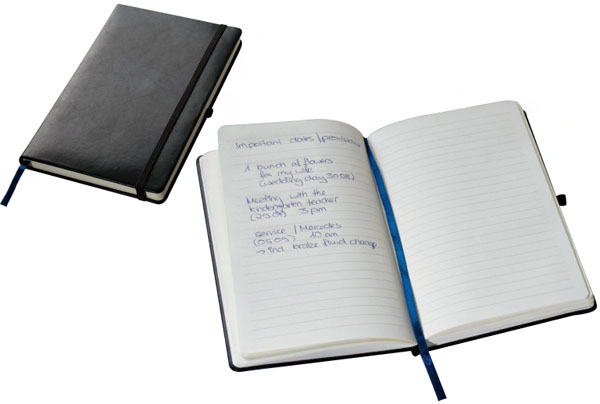 Important dates /
1 bunch of flowers
for my wife
(wedding day 30.08)
Meeting with the
kindergarten teacher
(29.08) 3 pm
service / Mercedes
(05.09) 10 am
→ incl. brake fluid change